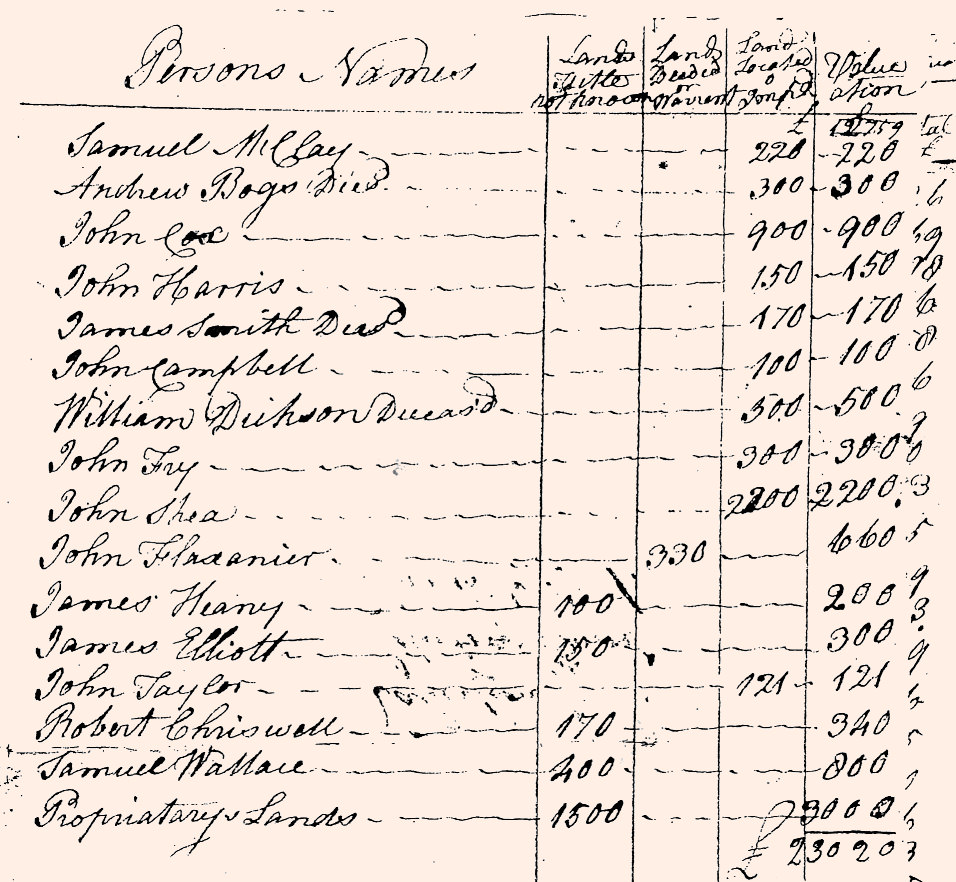 Persons Names Lands Title not known Lands Deeded or Warrent Land Located Valuation
£ 12759
Samuel McClay 220 220
Andrew Bogs Died 300 300
John Cox 900 900
John Harris 150 150
James Smith Decd 170 170
John Campbell 100 100
William Dickson Duceas'd 500 500
John Fry 300 300
John Shea 2200 2200
John Flaxanier 330 660
James Heany 100 200
James Elliott 150 300
John Taylor 121 121
Robert Chriswell 170 340
Samuel Wallace 400 800
Propriatarys Lands 1500 3000
£ 23020